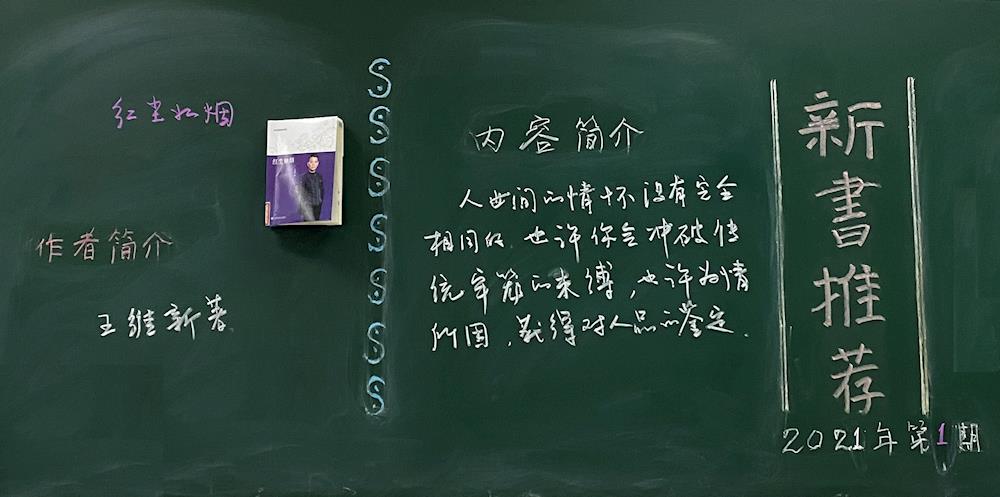 红尘如烟
红尘如烟
作者简介
王维新著
内容简介
人世间的情怀没有完全
相同的，也许你会冲破传
统牢笼的束缚，也许为情
所困，获得对人品的鉴定.
新書推荐
2021年第1期